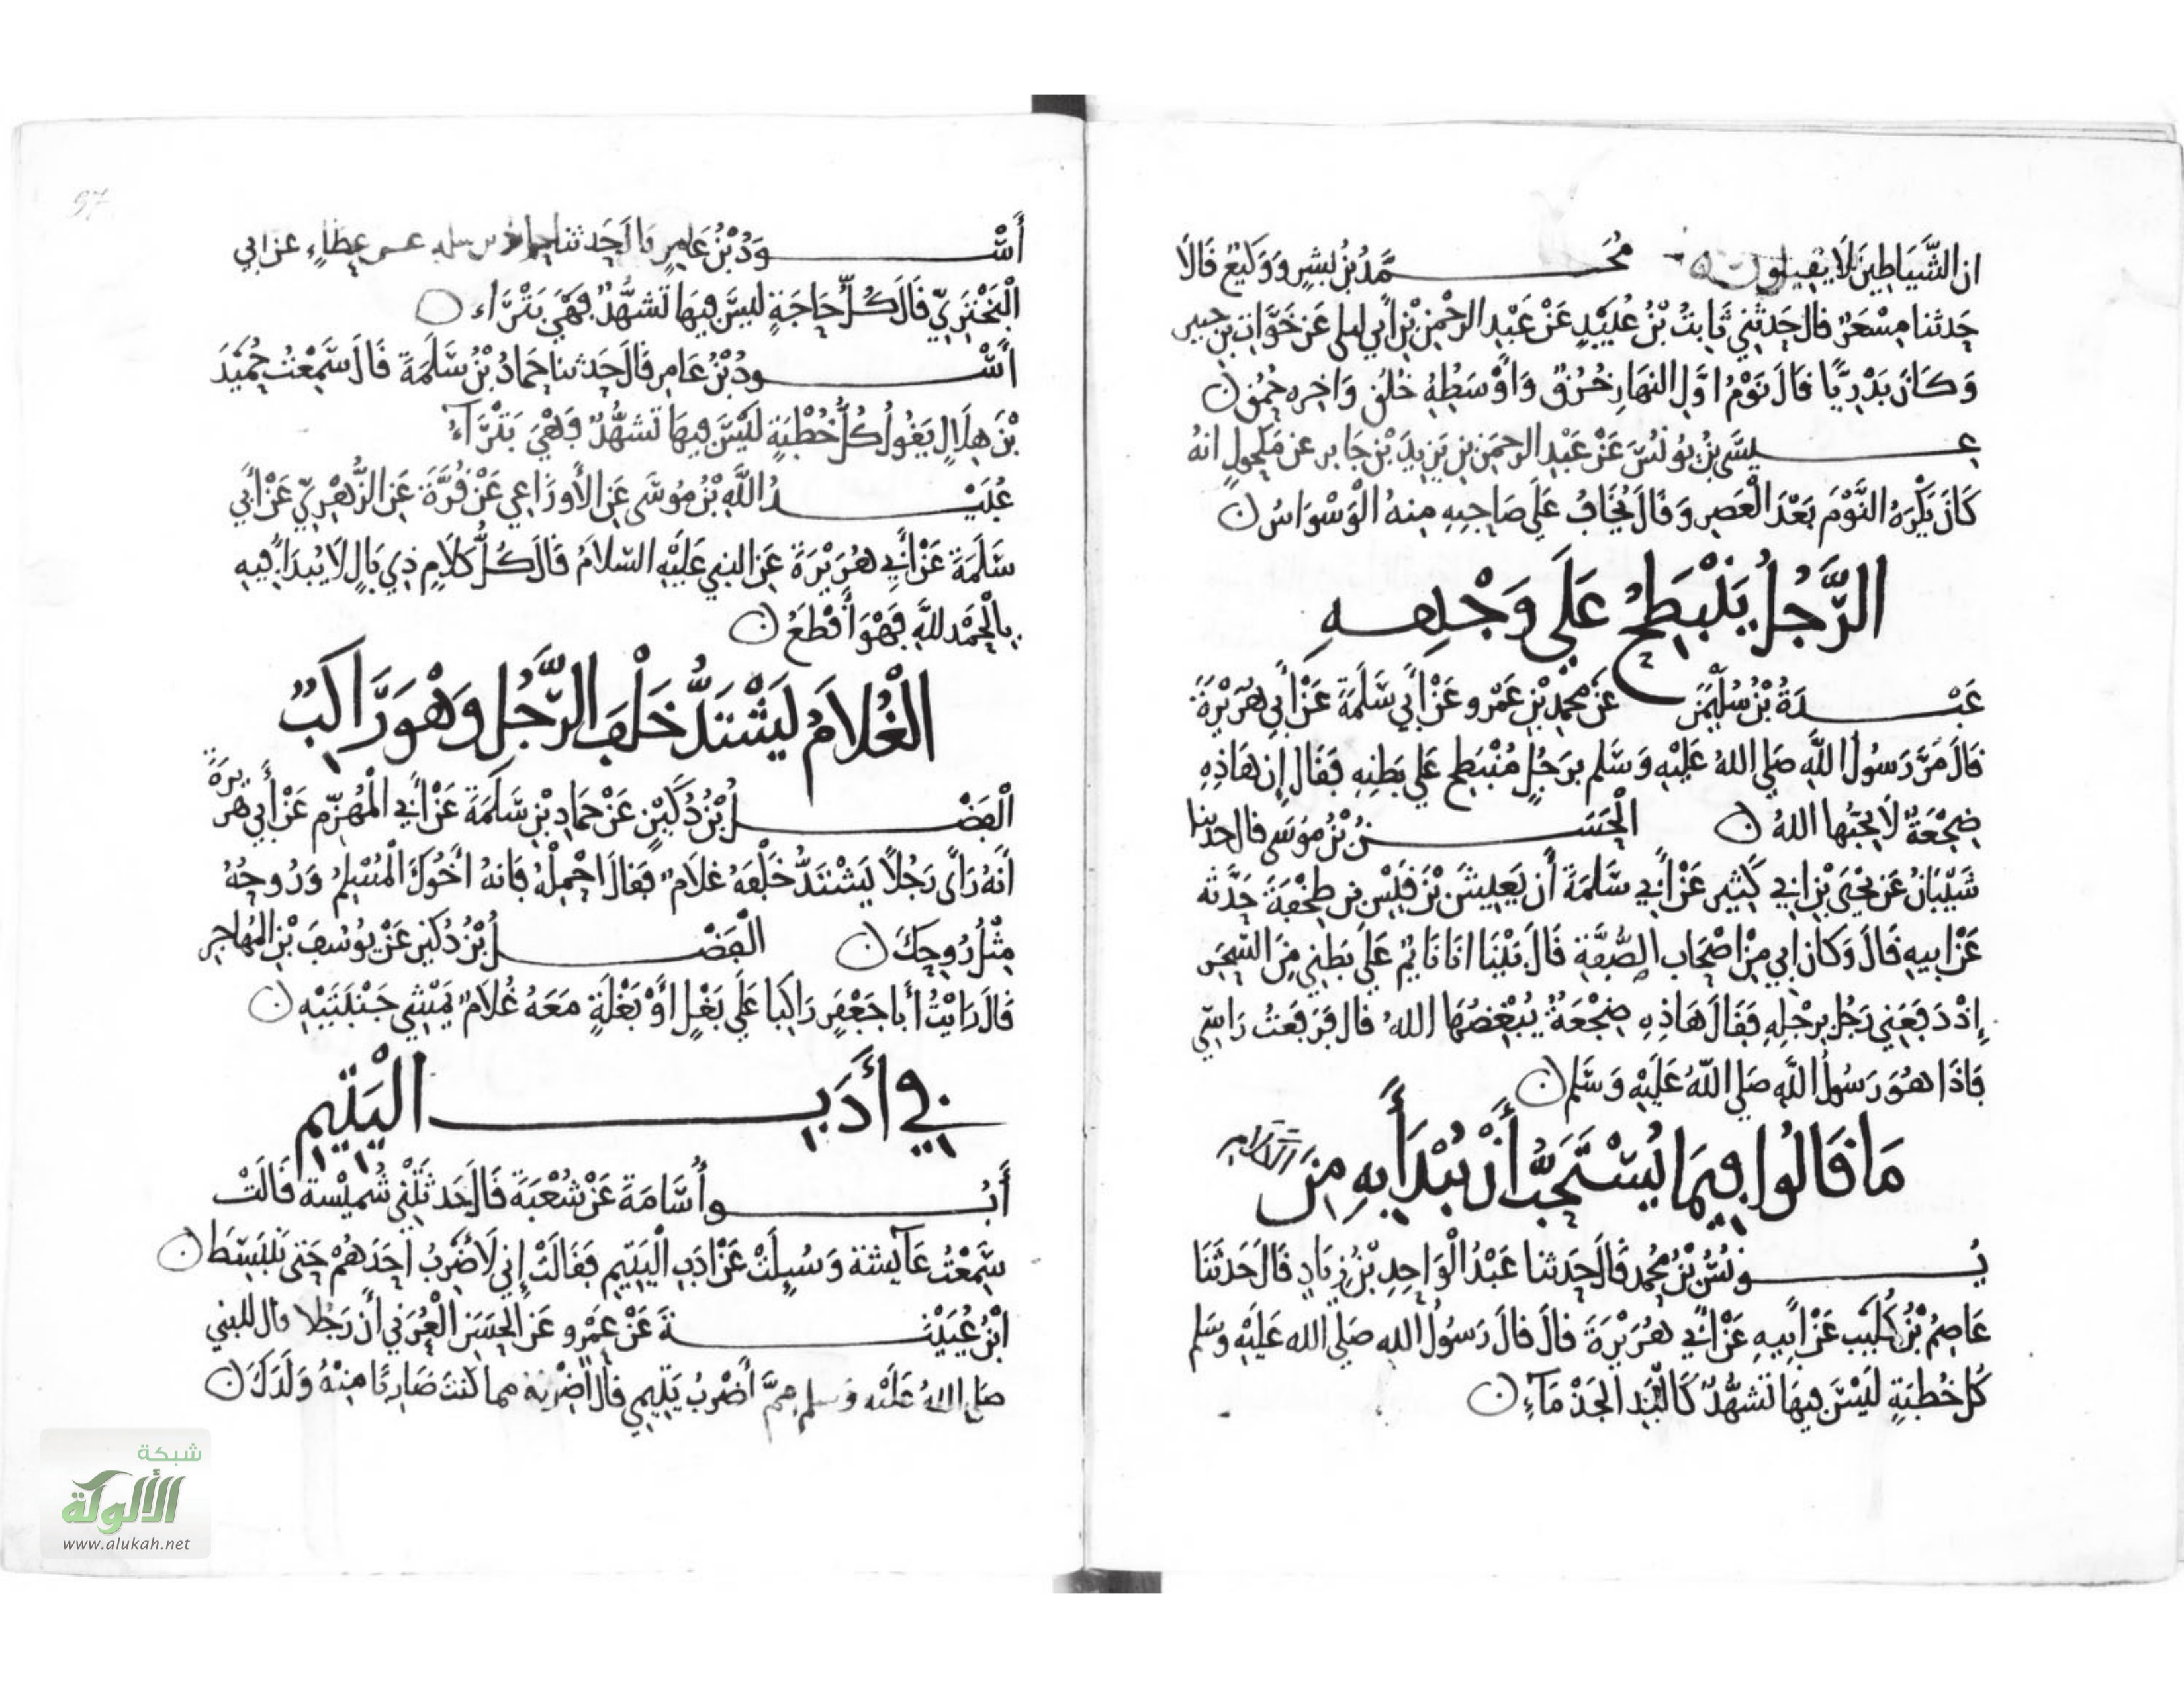 ان الشَّيَاطِينَ لَا يَقِيلُونَ مُحَمَّدُ بْنُ بِشْرٍ وَوَكِيعٌ قَالَا
حَدثنا مِسْعَرٌ قال حَدثَنِي ثَابِتُ بْنُ عُبَيْدٍ عَنْ عَبْدِ الرحْمٰنِ بْنِ أَبِي ليلى عَن خَوَّاتِ بْنِ جبير
وَكَانَ بَدْرِيًّا قَالَ نَوْمُ اوَّلِ النهَارِ خُرْقٌ وَأَوْسَطِهِ خُلُقٌ وَاخِرِه حُمُقٌ
عِيسَى بْنُ يُونُسَ عَنْ عَبْدِ الرحمَنِ بْنِ يَزِيدَ بْنِ جَابِر عن مَكْحُولٍ انهُ
كَانَ يَكْرَهُ النَّوْمَ بَعْدَ الْعَصِرِ وَقَالَ يُخَافُ عَلَى صَاحِبِهِ مِنهُ الْوَسْوَاسُ
الرَّجُلُ يَنْبَطِحُ عَلَى وَجْهِهِ
عَبْدَةُ بْنُ سُلَيْمٰنَ عَنْ مُحمَّدِ بْنِ عَمْرٍو عَنْ أَبِي سَلَمَةَ عَنْ أَبِي هُرَيْرَةَ
قَالَ مَرَّ رَسُولُ اللَّهِ صَلى اللهُ عَلَيْهِ وَسَّلم بِرَجُلٍ مُنْبَطِحٍ عَلى بَطنِهِ فَقَال إِن هَاذِهِ
ضِجْعَةٌ لَا يُحِبُّهَا اللهُ الْحَسَنُ بْنُ مُوسَى قال حدثنا
شَيْبَانُ عَن يَحْيَى بْنِ ابِي كَثِيرٍ عَنْ أَبِي سَلَمَةَ أَن يَعِيشَ بْنَ قَيْسِ بْنِ طِخْفَةَ حَدَّثَه
عَنْ ابِيهِ قَالَ وَكَانَ ابِي مِنْ اصْحَابِ الصُّفَّةِ قَالَ بَيْنَا انَا نَايِمٌ عَلَى بَطنِي مِنَ السَّحَرِ
إِذْ دَفَعَنِي رَجُلٌ بِرِجْلِهِ فَقَالَ هَاذِهِ ضِجْعَةٌ يُبْغِضُهَا اللهُ قال فَرَفَعْتُ رَاسِّي
فَاذَا هُوَ رَسُولُ اللَّهِ صَلى اللَّهُ عَلَيْهِ وَسَّلم
مَا قَالُوا فِيمَا يُسْتَحَبُّ أَنْ يُبْدَأَ بِهِ مِنَ الكَلَامِ
يُونُسُ بْنُ مُحمد قَالَ حَدثنا عَبْدُ الْوَاحِدِ بْنُ زِيَادٍ قَالَ حَدَّثَنَا
عَاصِمُ بْنُ كُلَيْبٍ عَنْ أَبِيهِ عَنْ أَبِي هُرَيْرَةَ قَالَ قالَ رَسُولُ اللهِ صَلى الله عَلَيْهِ وسَلم
كُل خُطْبَةٍ لَيْسَ فِيهَا تَشَهُّدٌ كَالْيَدِ الجَذْمَآءِ
أَسْوَدُ بْنُ عَامِرٍ قَالَ حَدثنا حماد بن سلمه عن عطَاءٍ عن ابي
الْبَخْتَرِيّ قَالَ كُلُّ حَاجَةٍ لَيْسَ فِيهَا تَشَهُّدٌ فَهْيَ بَتْرَاء
أَسْودُ بْنُ عَامِر قَالَ حَدثنا حَمادُ بْنُ سَلَمَةَ قَالَ سَمِعْتُ حُمَيْدَ
بْنَ هِلَالٍ يَقُولُ كُلُّ خُطْبَةٍ لَيْسَ فِيهَا تَشَهُّدٌ فَهْيَ بَتْرَآءُ
عُبَيْدُ اللَّهِ بْنُ مُوسَى عَنِ الأَوزَاعِي عَنْ قُرَّةَ عَنِ الزُّهْرِيّ عَنْ أَبِي
سَلَمَةَ عَنْ أَبِي هُرَيْرَةَ عَنِ النبي عَلَيْهِ السّلَامُ قَالَ كُلُّ كَلَامٍ ذِي بَالٍ لَا يُبْدَأُ فِيهِ
بِالْحَمْدِ للَّهِ فَهْوَ أَقْطَعُ
الْغُلَامُ يَشْتَدُّ خَلْفَ الرَّجُلِ وَهْوَ رَاكِبٌ
الْفَضْلُ بْنُ دُكَيْنٍ عَنْ حَمادِ بْنِ سَلَمَةَ عَنْ أَبِي الْمُهَزِّمِ عَنْ أَبِي هُرَيرَةَ
أَنهُ رَأَى رَجُلًا يَشْتَدُّ خَلْفَهُ غُلَامٌ فَقَالَ احْمِلْهُ فَانهُ أَخُوكَ الْمُسْلِمُ وَرُوحُهُ
مِثْلُ رُوحِكَ الْفَضْلُ بْنُ دُكَيْنٍ عَنْ يُوسُفَ بْنِ المُهَاجِرِ
قَالَ رَايْتُ أَبَا جَعْفَرٍ رَاكِبًا عَلَى بَغْلٍ أَوْ بَغْلَةٍ مَعَهُ غُلَامٌ يَمْشِي جَنْبَتَيْهِ
فِي أَدَبِ الْيَتِيمِ
أَبُو أُسَّامَةَ عَنْ شُعْبَةَ قَالَ حَدثَتْنِي شُمَيْسة قَالَتْ
سَمِعْتُ عَآيشةَ وَسُيِلَتْ عَنْ ادَبِ الْيَتِيمِ فَقَالَتْ إِنِي لَأَضْرِبُ أحَدَهُمْ حَتى يَنْبَسِّطَ
ابْنُ عُيَيْنَةَ عَنْ عَمْرٍو عَنِ الحَسَنِ الْعُرَنِي أَن رَجُلا قال للنبي
صَلى اللهُ عَلَيْهِ وَسلم مِمَّ أَضْرِبُ يَتِيمِي قال اضْرِبْهُ مما كُنتَ ضَارِبًا مِنْهُ وَلَدَكَ
شبكة
الألوكة
www.alukah.net